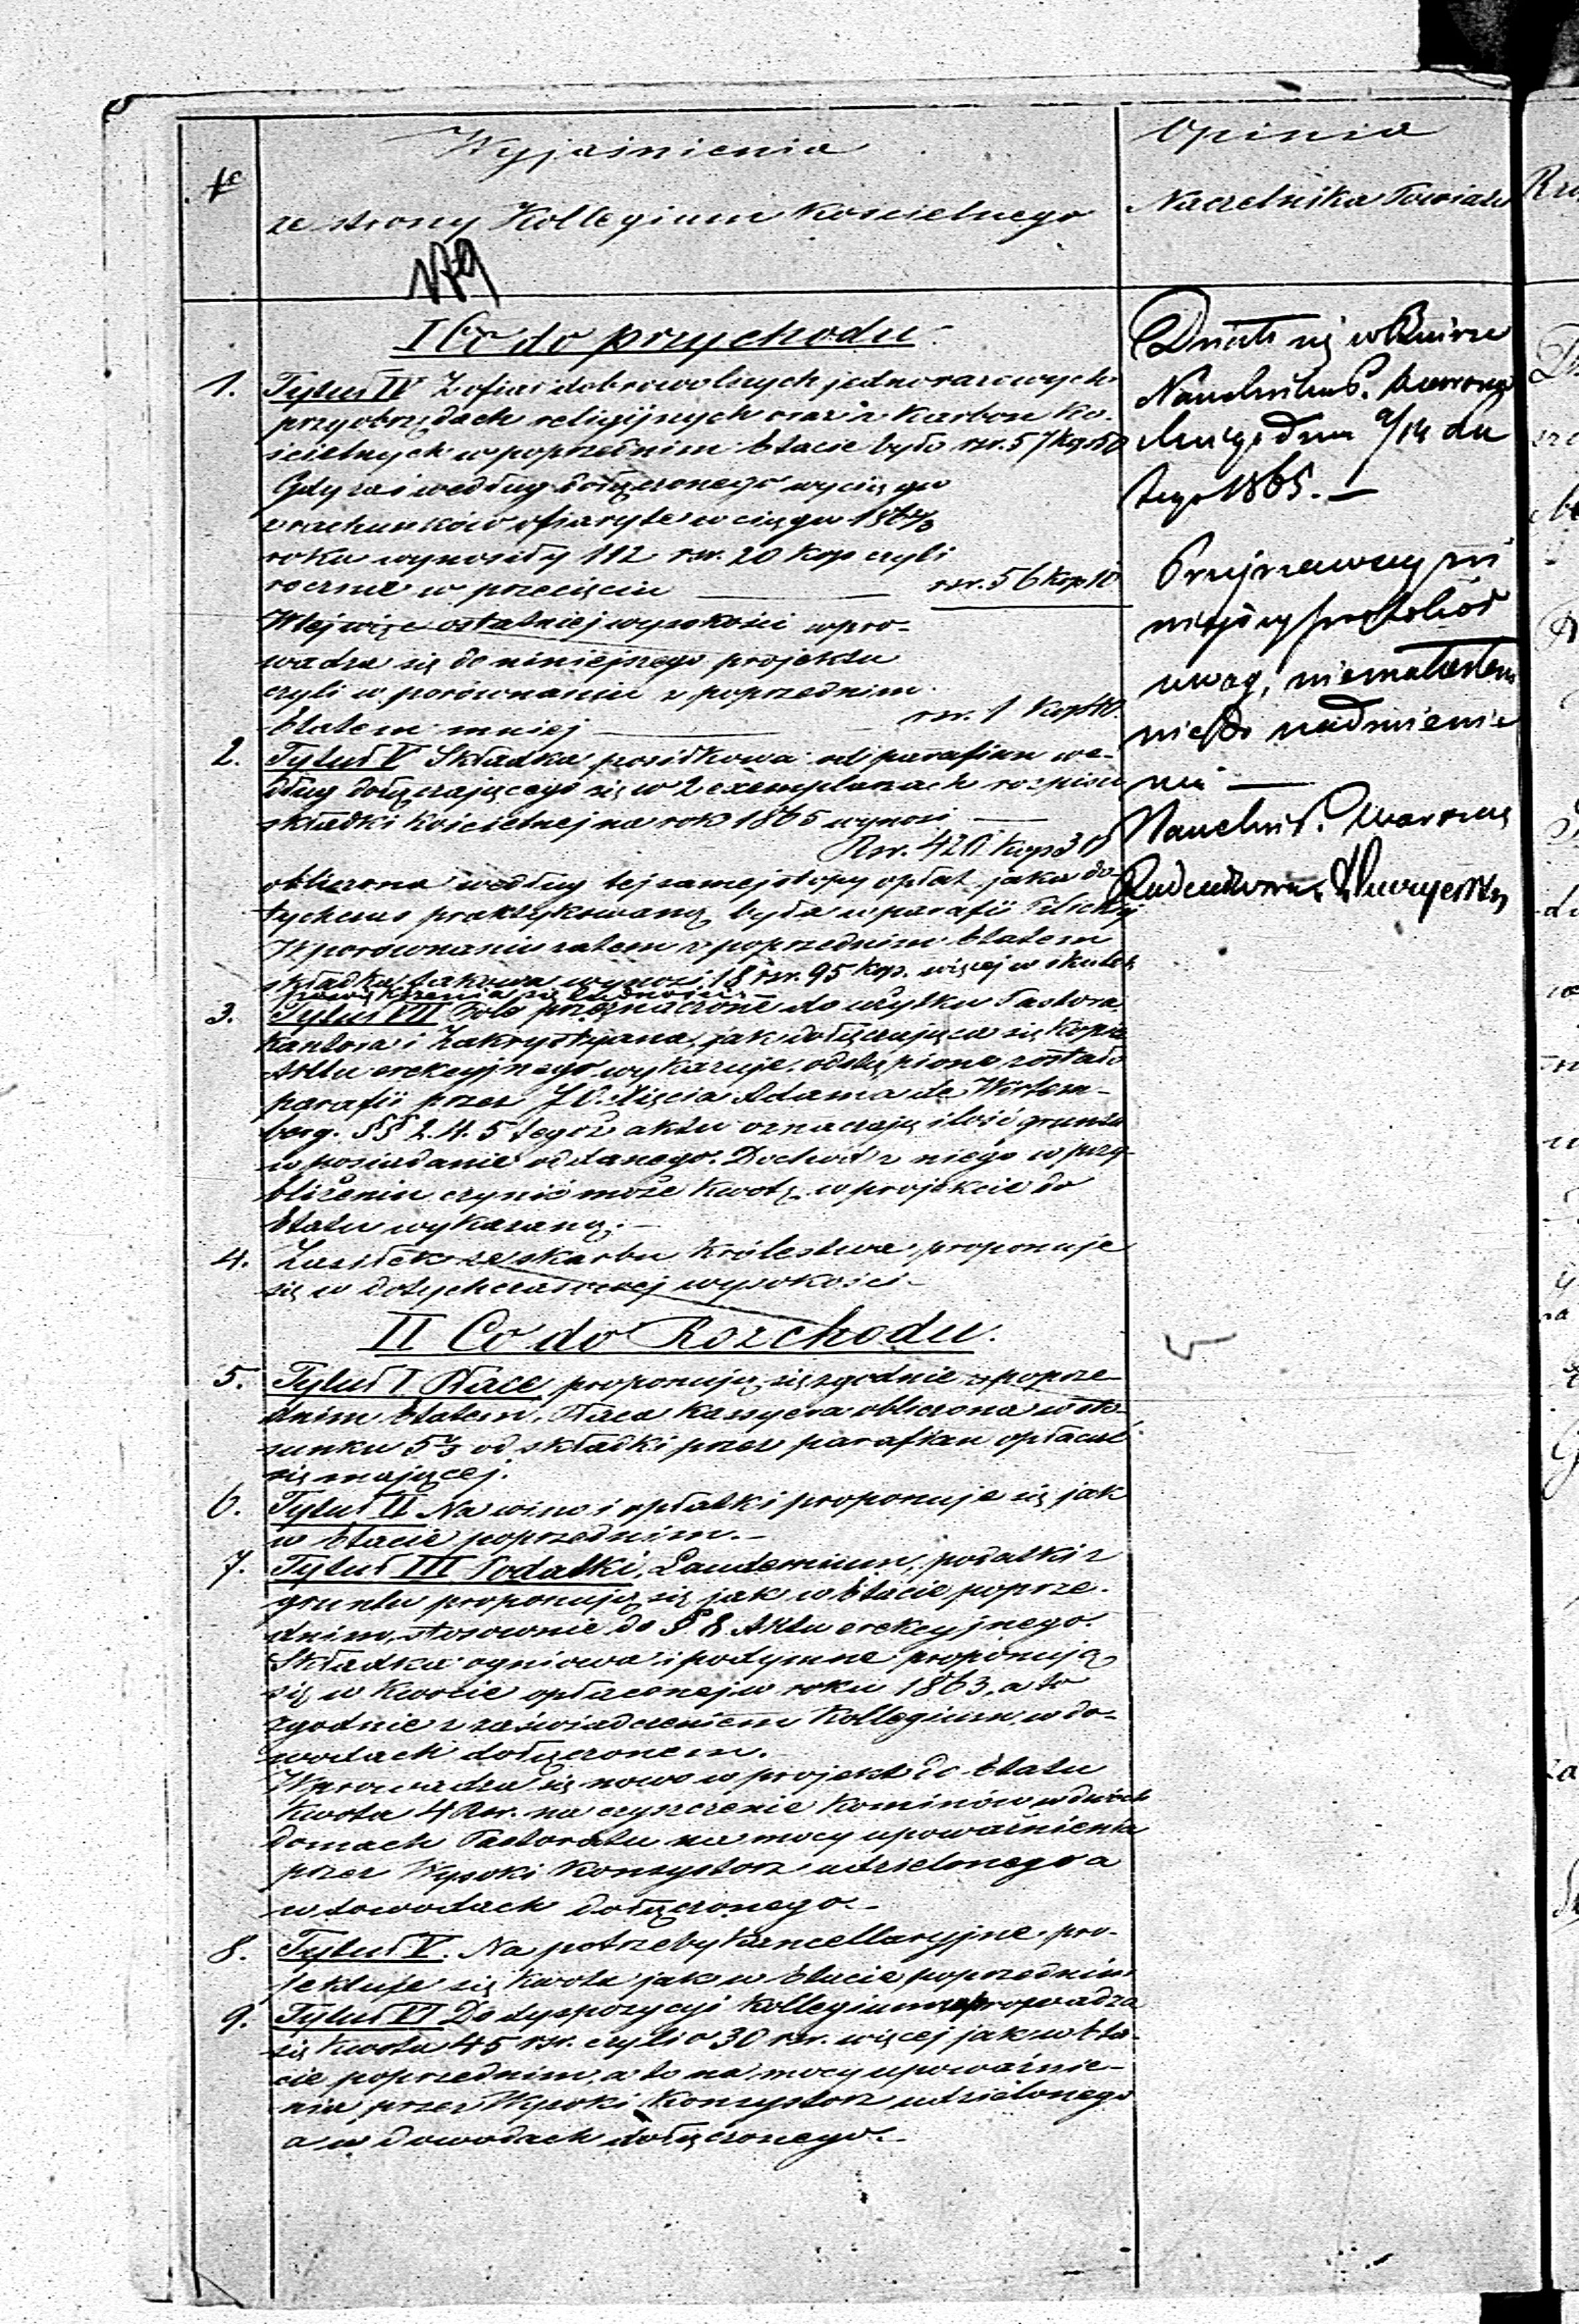 Wyjaśnienia
ze strony Kollegium Kościelnego
Opinia
Naczelnika Powiatu
№
179
I Co do przychodu.
1. Tytuł IV Z ofiar dobrowolnych jednorazowych
przy obrzędach religijnych oraz z Karbon Ko-
ścielnych w poprzednim Etacie było rsr. 57 kop. 50
Gdy zaś według dołączonego wyciągu
z rachunków ofiary te w ciągu 186 2/3
roku wynosiły 112 rsr. 20 Kop czyli
rocznie w przecięciu — rsr. 56 Kop 10
W tej więc ostatniej wysokości wpro-
wadza się do niniejszego projektu
czyli w porównaniu z poprzednim
Etatem mniej — rsr. 1 Kop 40.
2. Tytuł V Składka posiłkowa od parafian we-
dług dołączającego się w 2 exemplarzach rozpisu
składki kościelnej na rok 1865 wynosi —
Rsr. 420 Kop 30
obliczona według tej samej stopy opłat jaka do-
tychczas praktykowaną była w parafii Pilickiej
W porównaniu zatem z poprzednim Etatem
składka takowa wynosi 18 rsr. 95 kop. więcej w skutek
powiększenia się ludności.—
3. Tytuł VII Pole przeznaczone do użytku Pastora
Kantora i Zakrystyana, jak dołączająca się Kopia
Aktu erekcyjnego wykazuje, odstąpione zostało
parafii przez J. O. Xięcia Adama de Wirtem-
berg. §§ 2. 4. 5 tegoż aktu oznaczają ilość gruntu
w posiadanie oddanego. Dochód z niego w przy-
bliżeniu czynić może Kwotę w projekcie do
Etatu wykazaną.—
4. Zasiłek ze skarbu Królestwa proponuje
się w dotychczasowej wysokości—
II Co do Rozchodu.
5. Tytuł I Płace proponują się zgodnie z poprze-
dnim Etatem. Płaca Kassyera obliczona w sto-
sunku 5% od składki przez parafian opłacać
się mającej.
6. Tytuł II Na wino i opłatki proponuje się jak
w Etacie poprzednim.—
7. Tytuł III Podatki. Laudemium, podatki z
gruntu proponują się jak w Etacie poprze-
dnim, stosownie do § 8 Aktu erekcyjnego.
Składka ogniowa i podymne proponują
się w Kwocie opłaconej w roku 1863, a to
zgodnie z zaświadczeniem Kollegium w do-
wodach dołączonem.
Wprowadza się nowo w projekt do Etatu
Kwota 4 Rsr. na czyszczenie Kominów w dwóch
domach Pastoratu na mocy upoważnienia
przez Wysoki Konsystorz udzielonego a
w dowodach dołączonego.—
8. Tytuł V. Na potrzeby Kancellaryjne pro-
jektuje się Kwota jak w Etacie poprzednim
9. Tytuł VI Do dyspozycyi Kollegium wprowadza
się Kwota 45 rsr. czyli o 30 rsr. więcej jak w Eta-
cie poprzednim, a to na mocy upoważnie-
nia przez Wysoki Konsystorz udzielonego
a w dowodach dołączonego.—
Działo się w Biurze
Naczelnika P.
dnia 2/14 Lu
tego 1865.—
Przejrzawszy ni
niejszy protokół
uwag, nieznalazłem
nic do nadmienie
nia —
Naczelnik P.